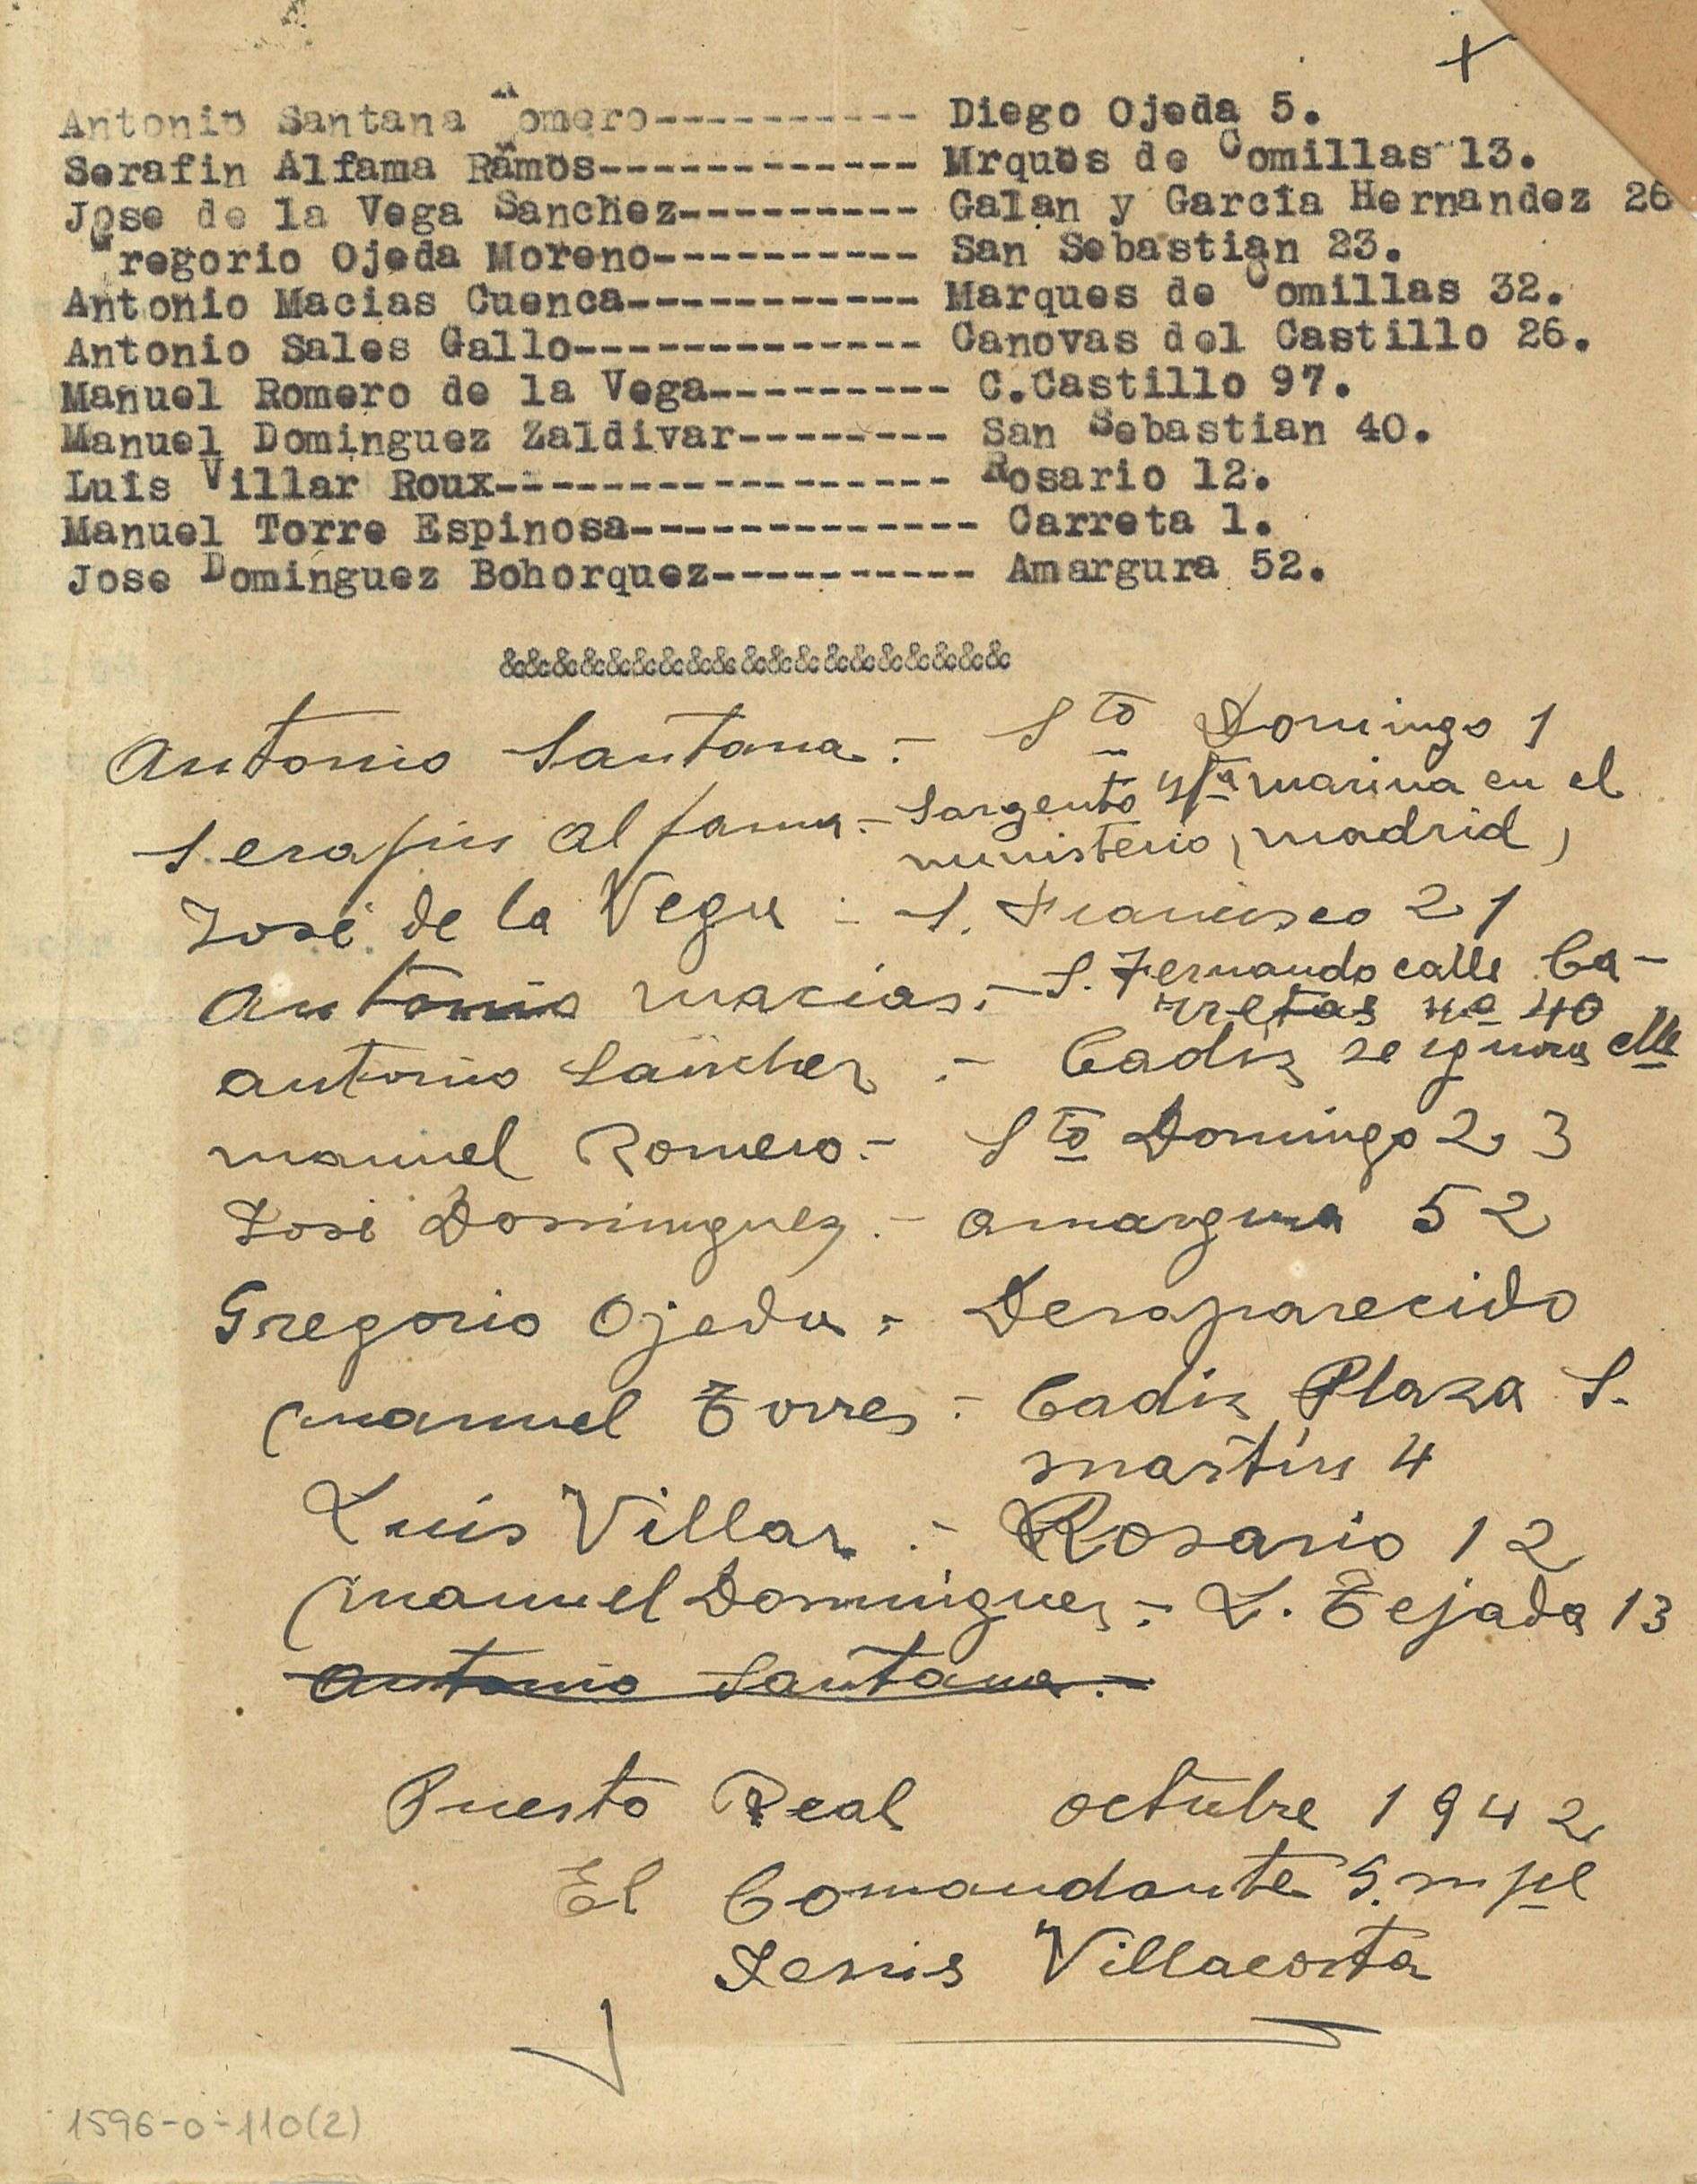 +
Antonio Santana Romero---------- Diego Ojeda 5.
Serafin Alfama Ramos------------ Mrques de Comillas 13.
Jose de la Vega Sanchez--------- Galan y Garcia Hernandez 26
Gregorio Ojeda Moreno---------- San Sebastian 23.
Antonio Macias Cuenca----------- Marques de Comillas 32.
Antonio Sales Gallo------------- Canovas del Castillo 26.
Manuel Romero de la Vega--------- C.Castillo 97.
Manuel Dominguez Zaldivar-------- San Sebastian 40.
Luis Villar Roux----------------- Rosario 12.
Manuel Torre Espinosa------------- Carreta 1.
Jose Dominguez Bohorquez---------- Amargura 52.
&&&&&&&&&&&&&&&&&&&
Antonio Santana.- Sto Domingo 1
Serafin Alfama.- Sargento Ifta marina en el
ministerio, madrid,
José de la Vega.- S. Francisco 21
Antonio macías.- S. Fernando calle Ca-
rretas nº 40
antonio Sánchez.- Cadiz se ignora clle
manuel Romero.- Sto Domingo 23
José Dominguez.- amargura 52
Gregorio Ojeda.- Desaparecido
manuel Torres.- Cadiz Plaza S.
martín 4
Luis Villar.- Rosario 12
manuel Domínguez.- L. Tejada 13
Antonio Santana.-
Puerto Real octubre 1942
El Comandante G. mpl
Jesus Villacorta
1596-0-110(2)